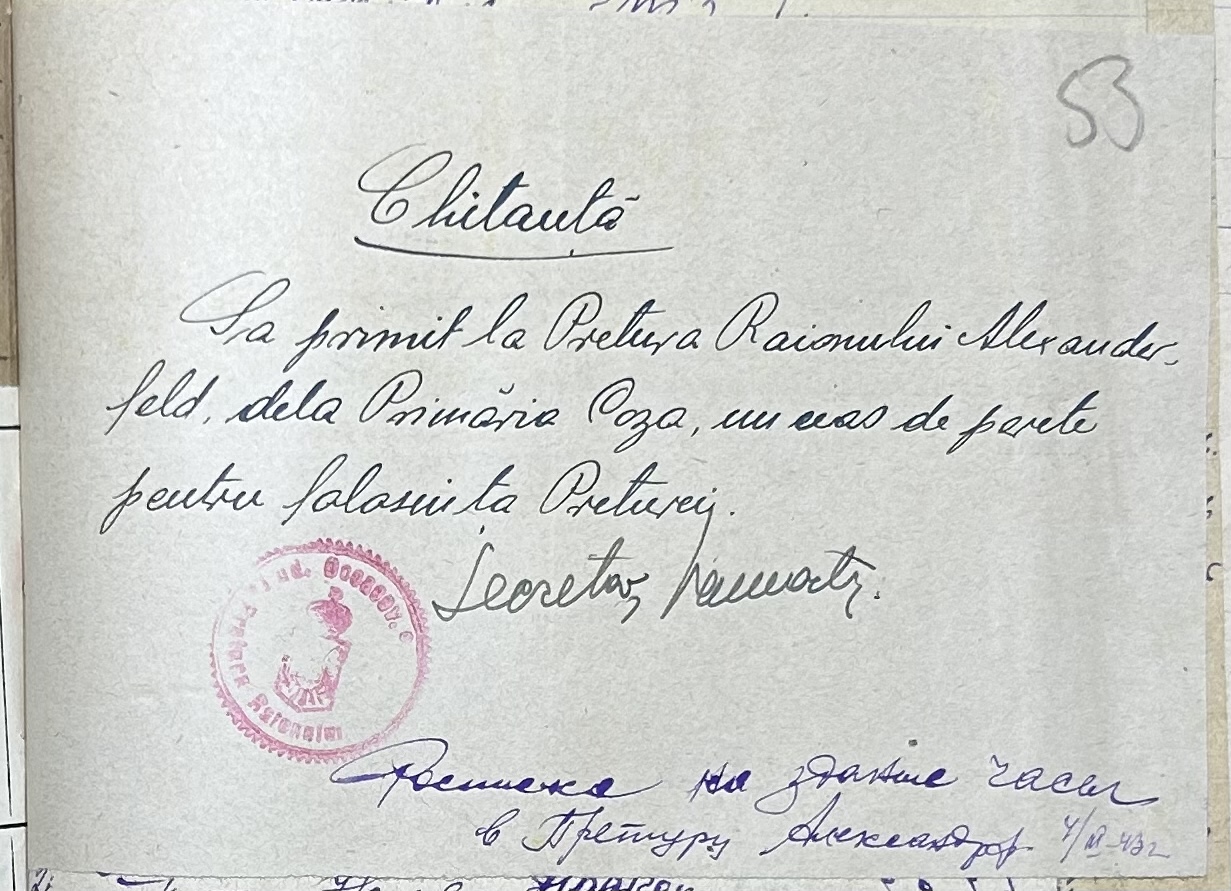 53
Chitanță
Sa primit la Pretura Raionului Alexander-
feld, dela Primăria Coza, un ceas de perete
pentru folosința Preturei.
Secretar,
Jud. Oceacov.
Pretura Raionului
Росписка на здание часы
в Претуру Александрф 4/XI-43г